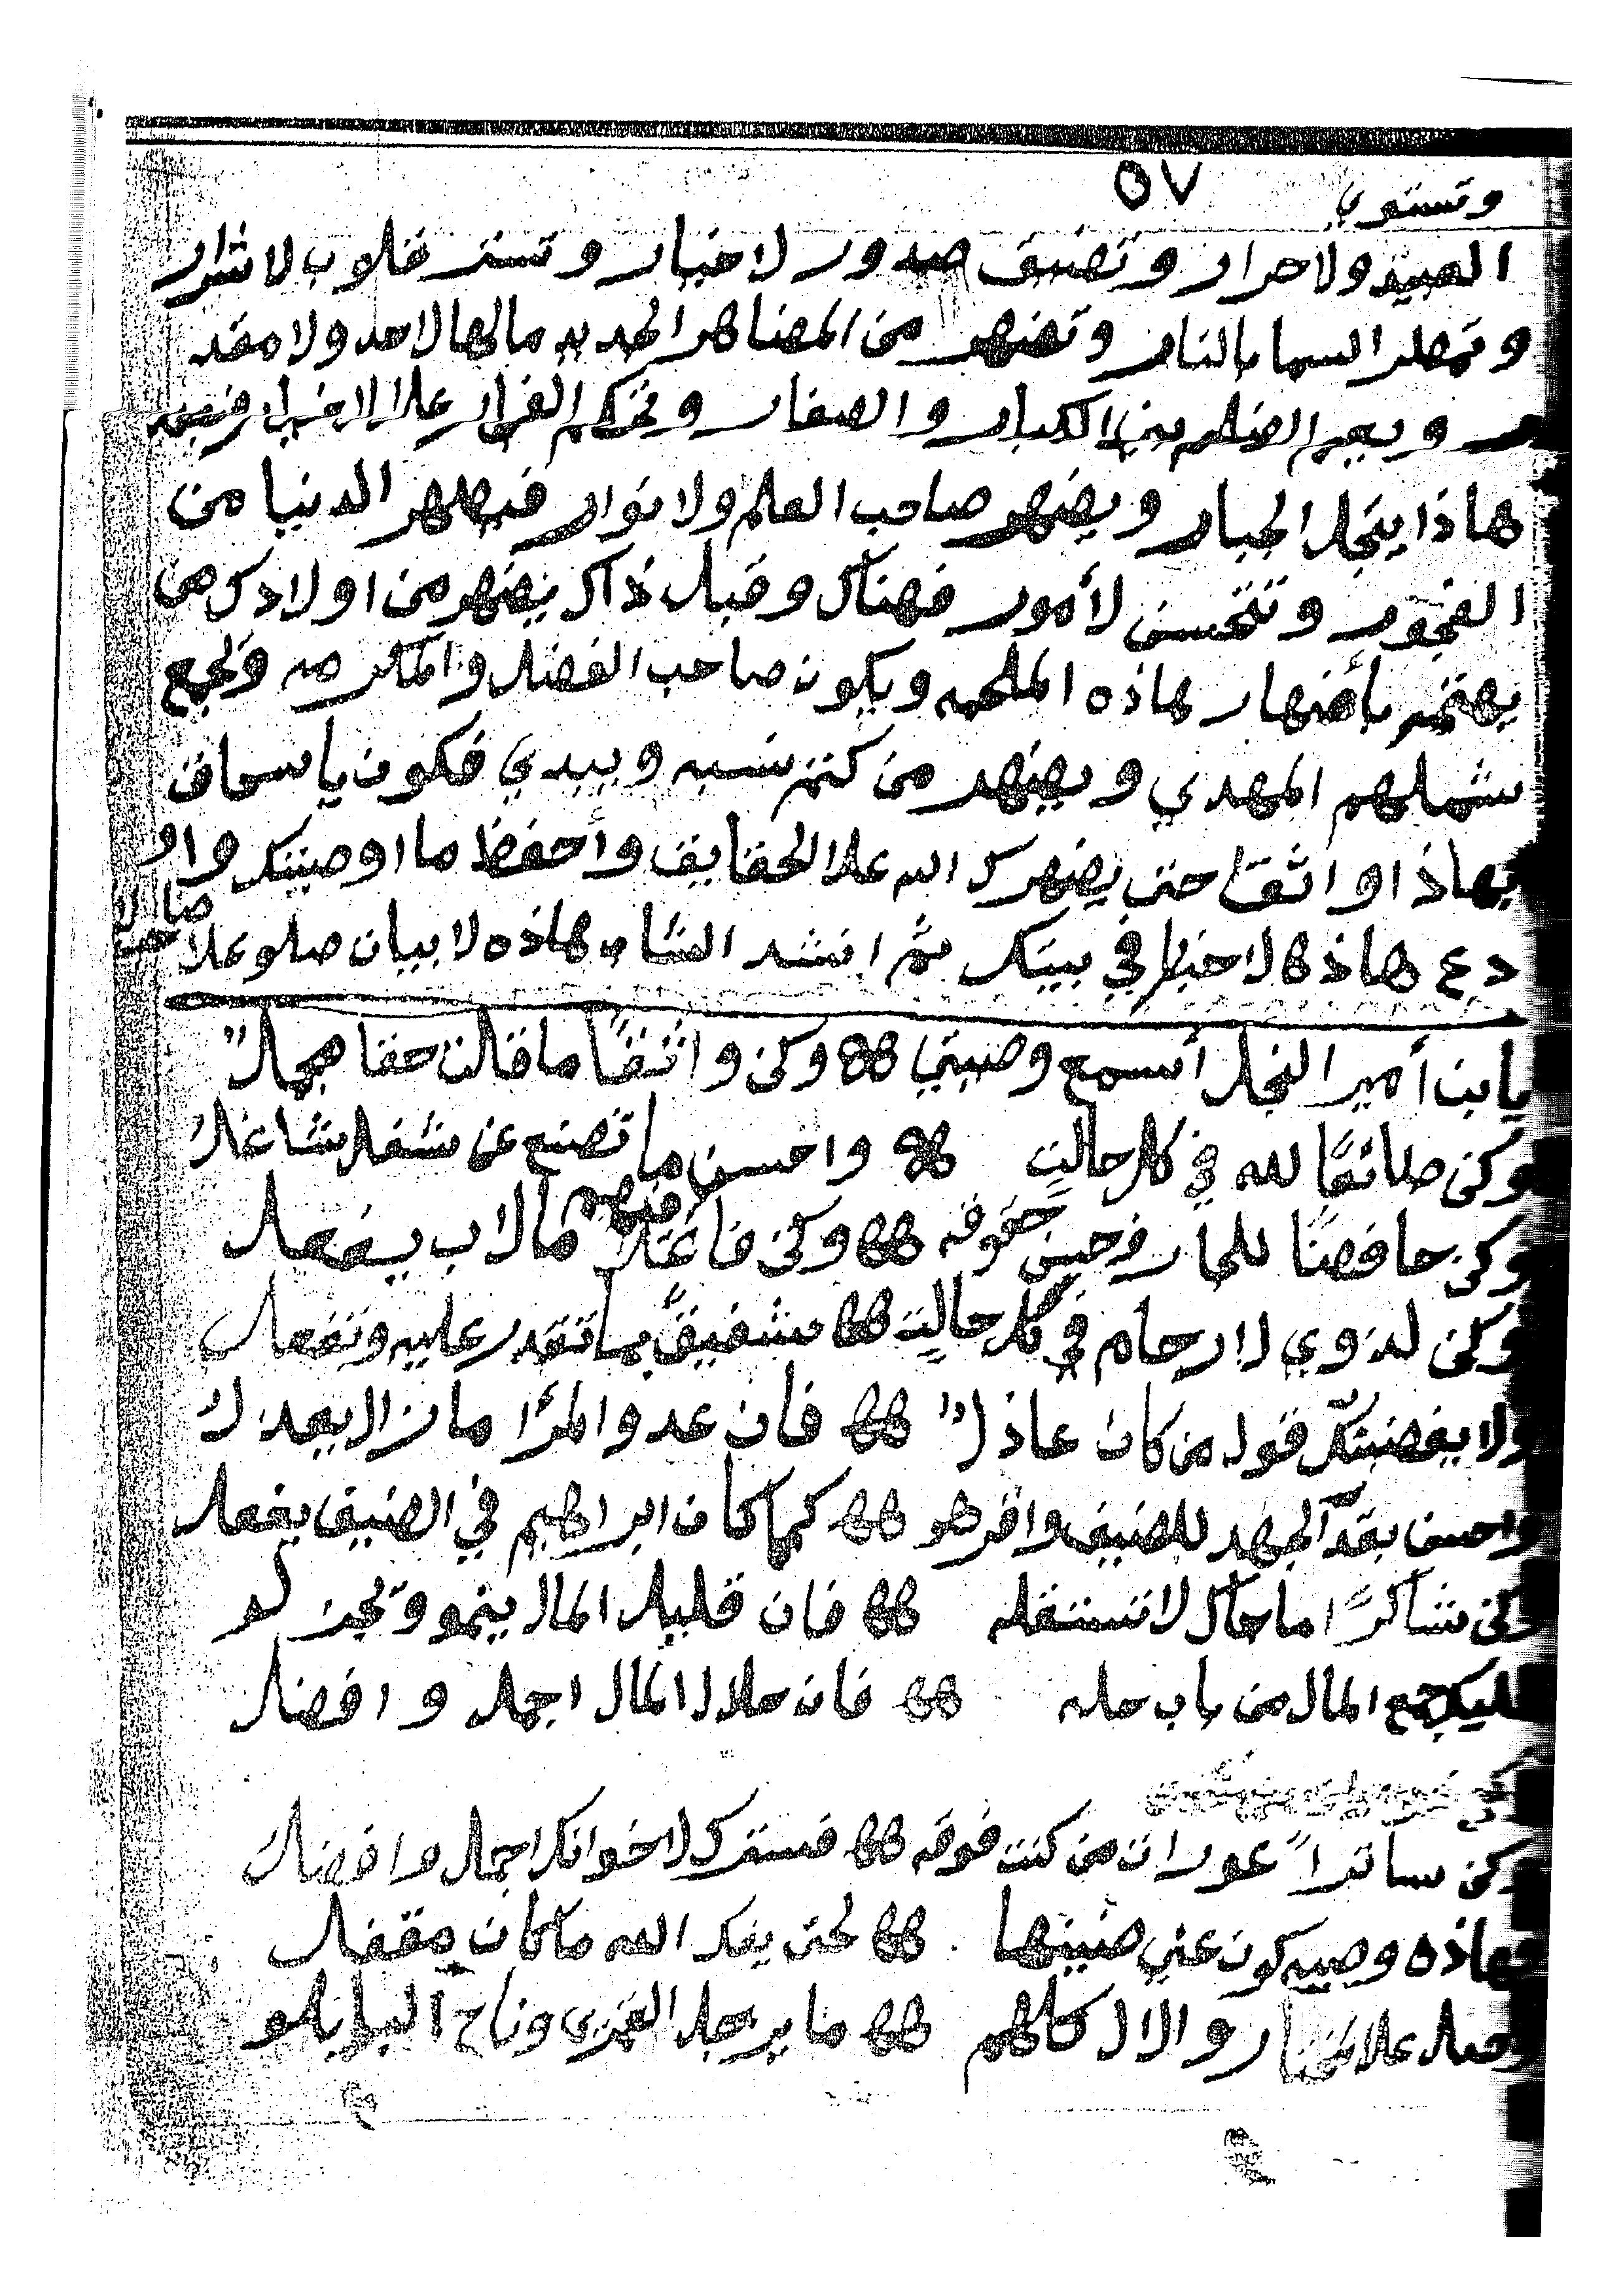 ٥٧
وتستوي
العبيد ولاحرار وتضيق صدور لاخيار وتستر قلوب لاشرار
وتمطر السما بالنار وتضهر من المضاهر الجديه مالها لاحد ولا مقد
ر ويعم الضلم بين الكبار والصغار وتحكم الفرار علا الاخيار
هاذا يتجلا الجبار ويضهر صاحب العلم ولا نوار فيطهر الدنيا من
الفجور وتتحسن لأمور فهناك وقبل ذاك يضهر من اولادك من
يهتم بأضهار هاذه الملحمه ويكون صاحب الفضل والمكرمه وتجمع
شملهم المهدي ويضهر من كتم نسبه ويبدي فكون يا سحاق
بهاذا واثقا حتى يضهرك الله علا الحقايق وأحفظ ما اوصيتك واو
دع هاذها لاخبار في بيتك ثم انشد الشاب هاذه لابيان صلو علا صاحب
يابن أمير النجل أسمع وصيتي وكن واثقًا ما قالت حقا
وكن طائعًا لله في كل حالت واحسن ما تصنع عن شغل شاغل
وكن حافضًا للجار وحسن حقوقه وكن فاعلا فيهم مالاب يفعل
وكن لذوي لارحام في كل حالت شفيقً بما تقدر عليه وتفعل
ولا يغضبنك قول من كان عاذل فان عدو المرأ مازال يعذل
واحسن بقد الجهد للضيف واقرهو كما كان ابراهيم في الضيف يفعل
وكن شاكرًا ماجاك لا تستقله فان قليل المال ينمو ويجزلو
المال من باب حله فان حلال المال اجمل وافضل
وكن ساتراً عورات من كنت فوقه فسترك لاخوانك اجمل وافضل
فهاذه وصيه كون عني حتى يفك الله ما كان مقفل
وصل علا المختار والال كلهم القمري وناح البلابلو